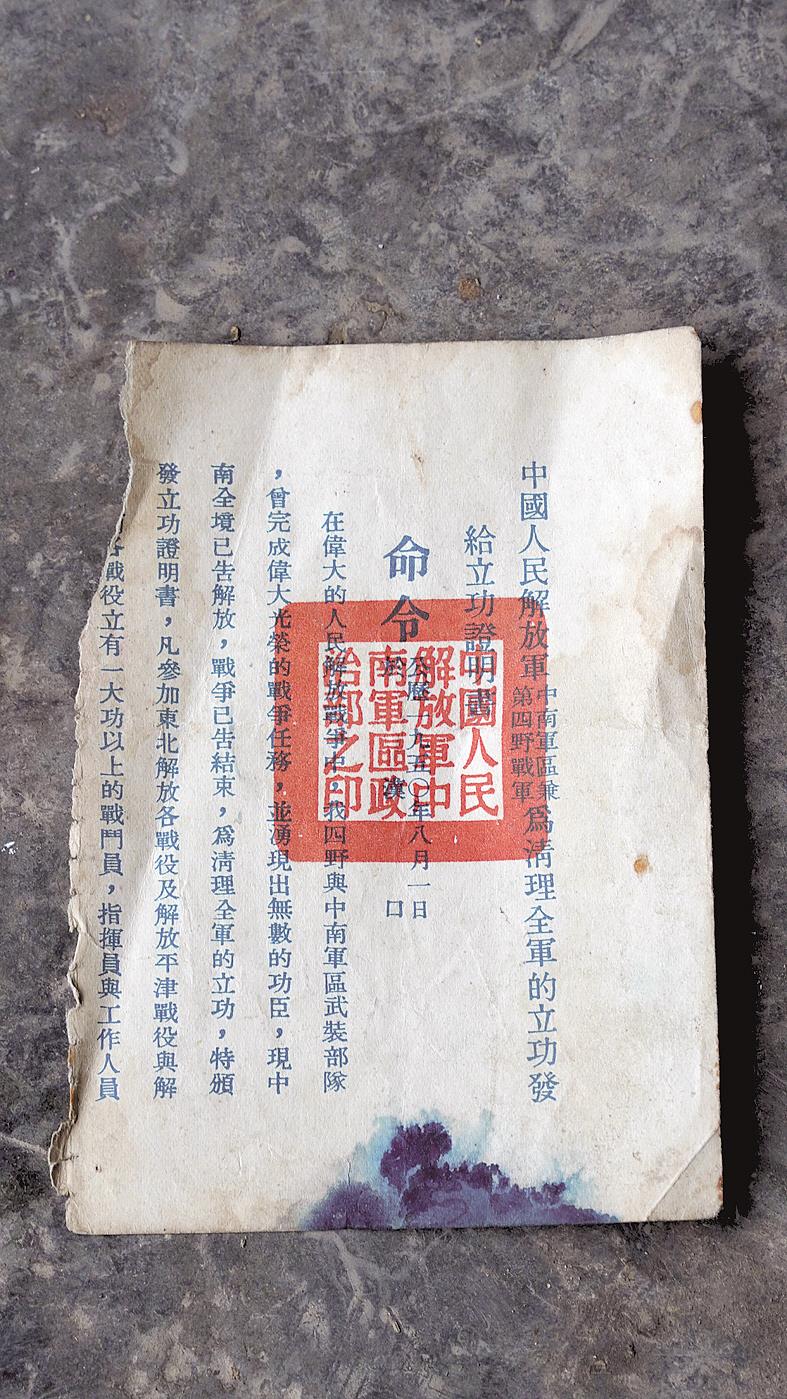 中國人民解放軍中南軍區兼第四野戰軍爲清理全軍的立功發
給立功證明書
命令
公歷一九五〇年八月一日
於漢口
在偉大的人民解放戰爭中，我四野與中南軍區武裝部隊
，曾完成偉大光榮的戰爭任務，並湧現出無數的功臣，現中
南全境已告解放，戰爭已告結束，爲清理全軍的立功，特頒
發立功證明書，凡參加東北解放各戰役及解放平津戰役與解
各戰役立有一大功以上的戰鬥員，指揮員與工作人員
中國人民
解放軍中
南軍區政
治部之印